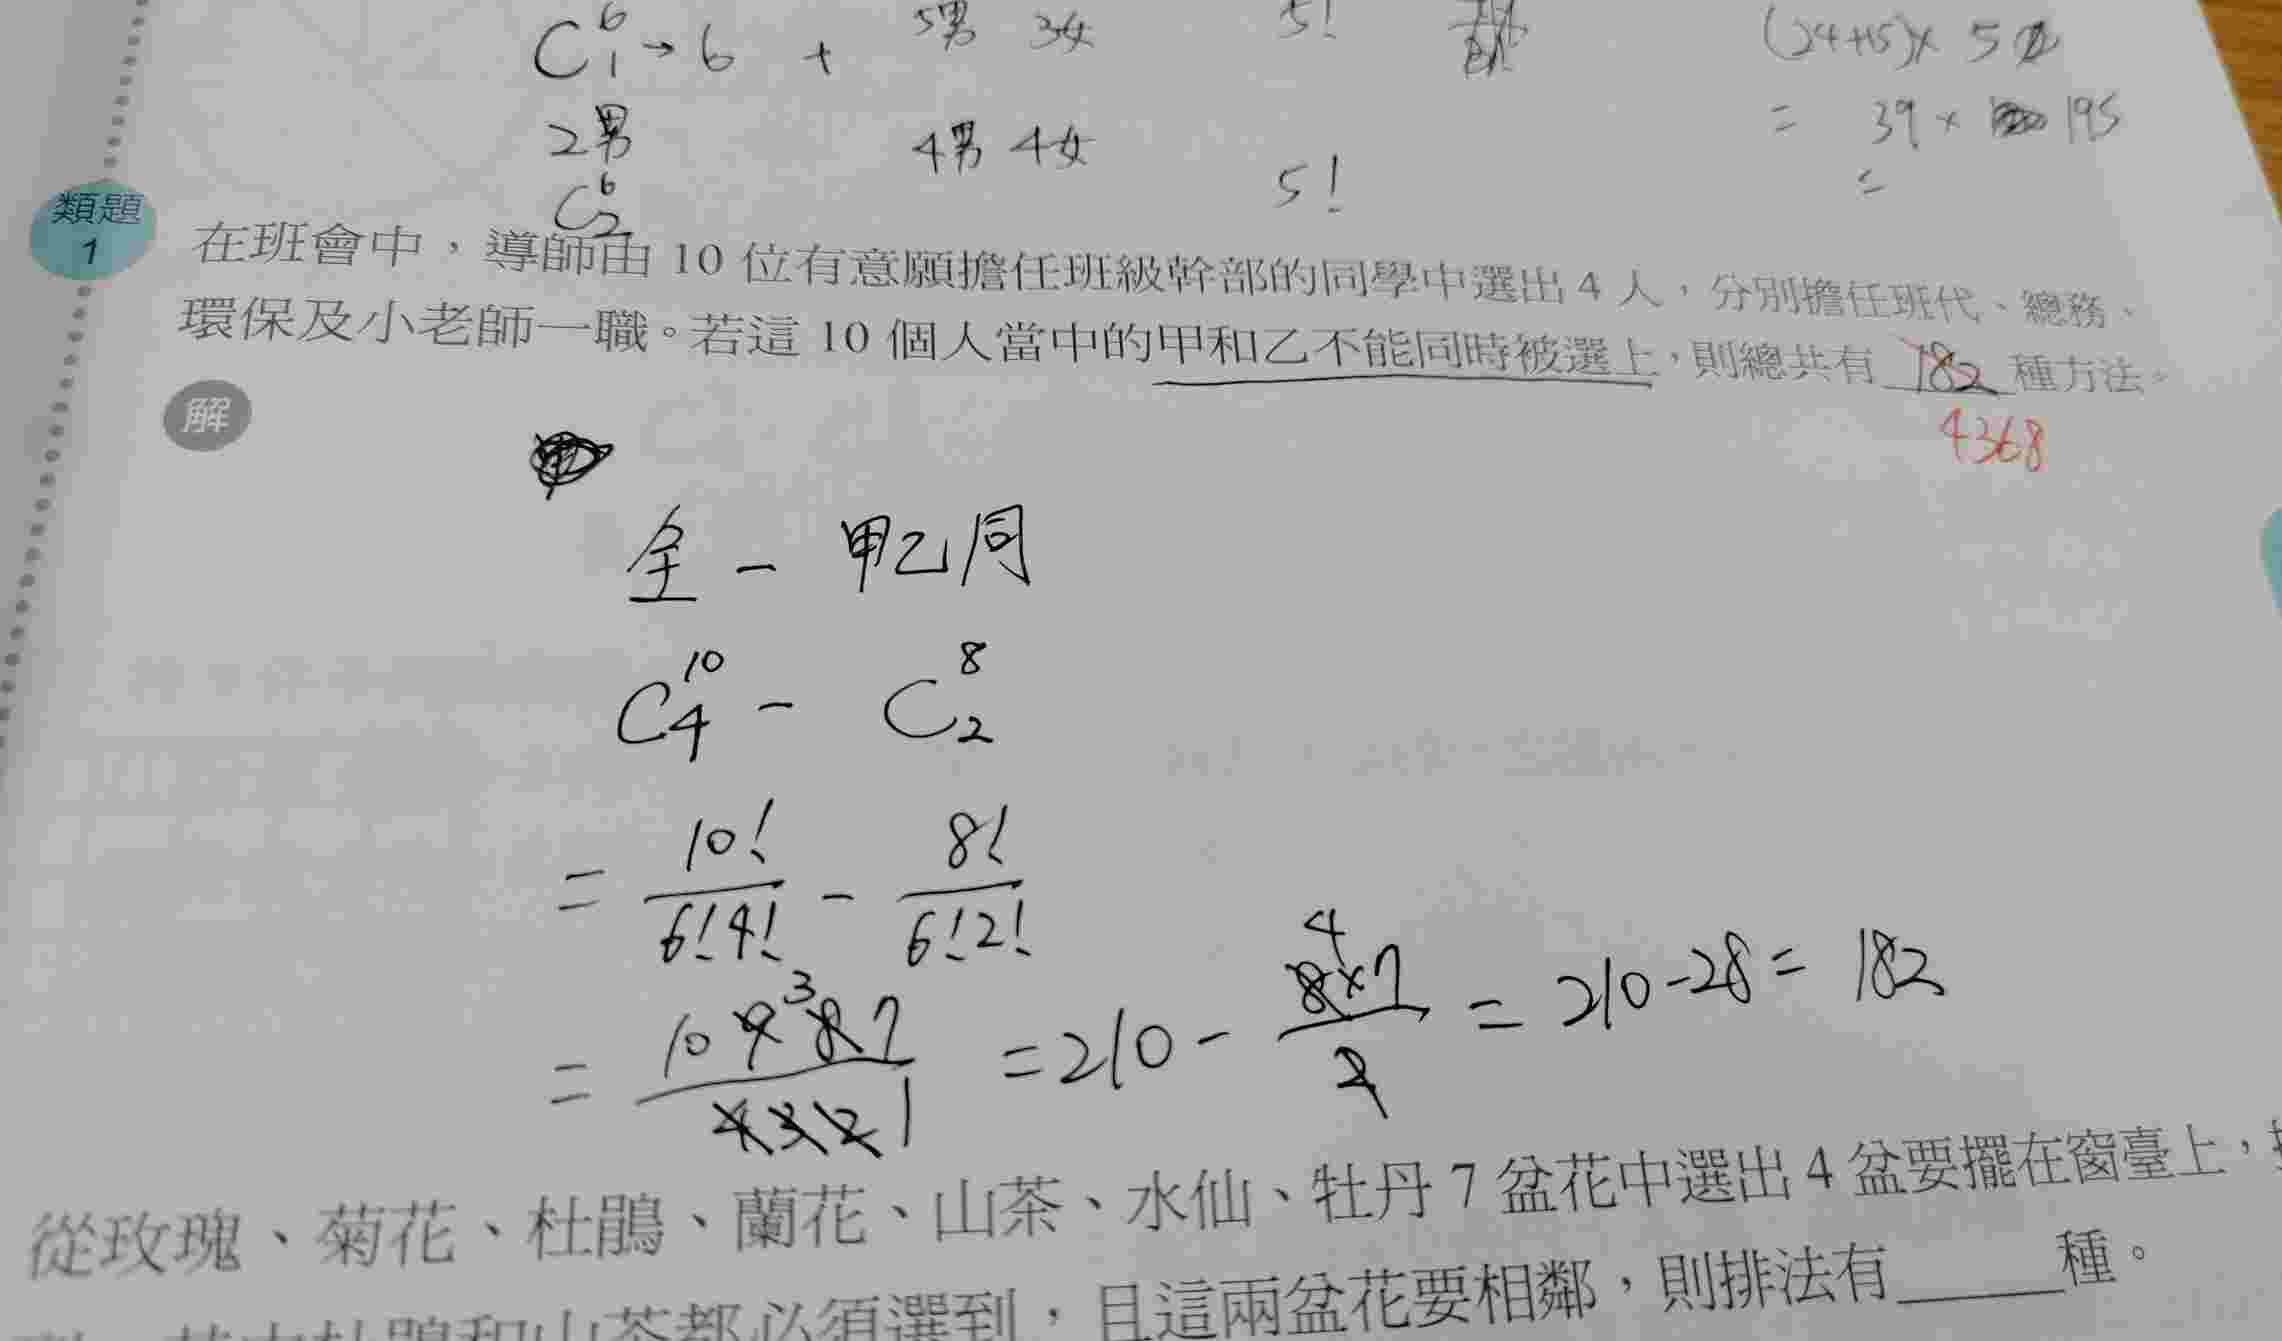 C⁶₁→6 + 5男 3女 5! (24+15)×5
2男 4男 4女 5! = 39× 195
C⁶₂ =
類題
1
在班會中，導師由 10 位有意願擔任班級幹部的同學中選出 4 人，分別擔任班代、總務、
環保及小老師一職。若這 10 個人當中的甲和乙不能同時被選上，則總共有 182 種方法。
4368
解
全 - 甲乙同
C¹⁰₄ - C⁸₂
= 10!/6!4! - 8!/6!2!
= 10 9 8 7/4 3 2 1 = 210 - 8×7/2 = 210-28 = 182
從玫瑰、菊花、杜鵑、蘭花、山茶、水仙、牡丹 7 盆花中選出 4 盆要擺在窗臺上，
杜鵑和山茶都必須選到，且這兩盆花要相鄰，則排法有 種。